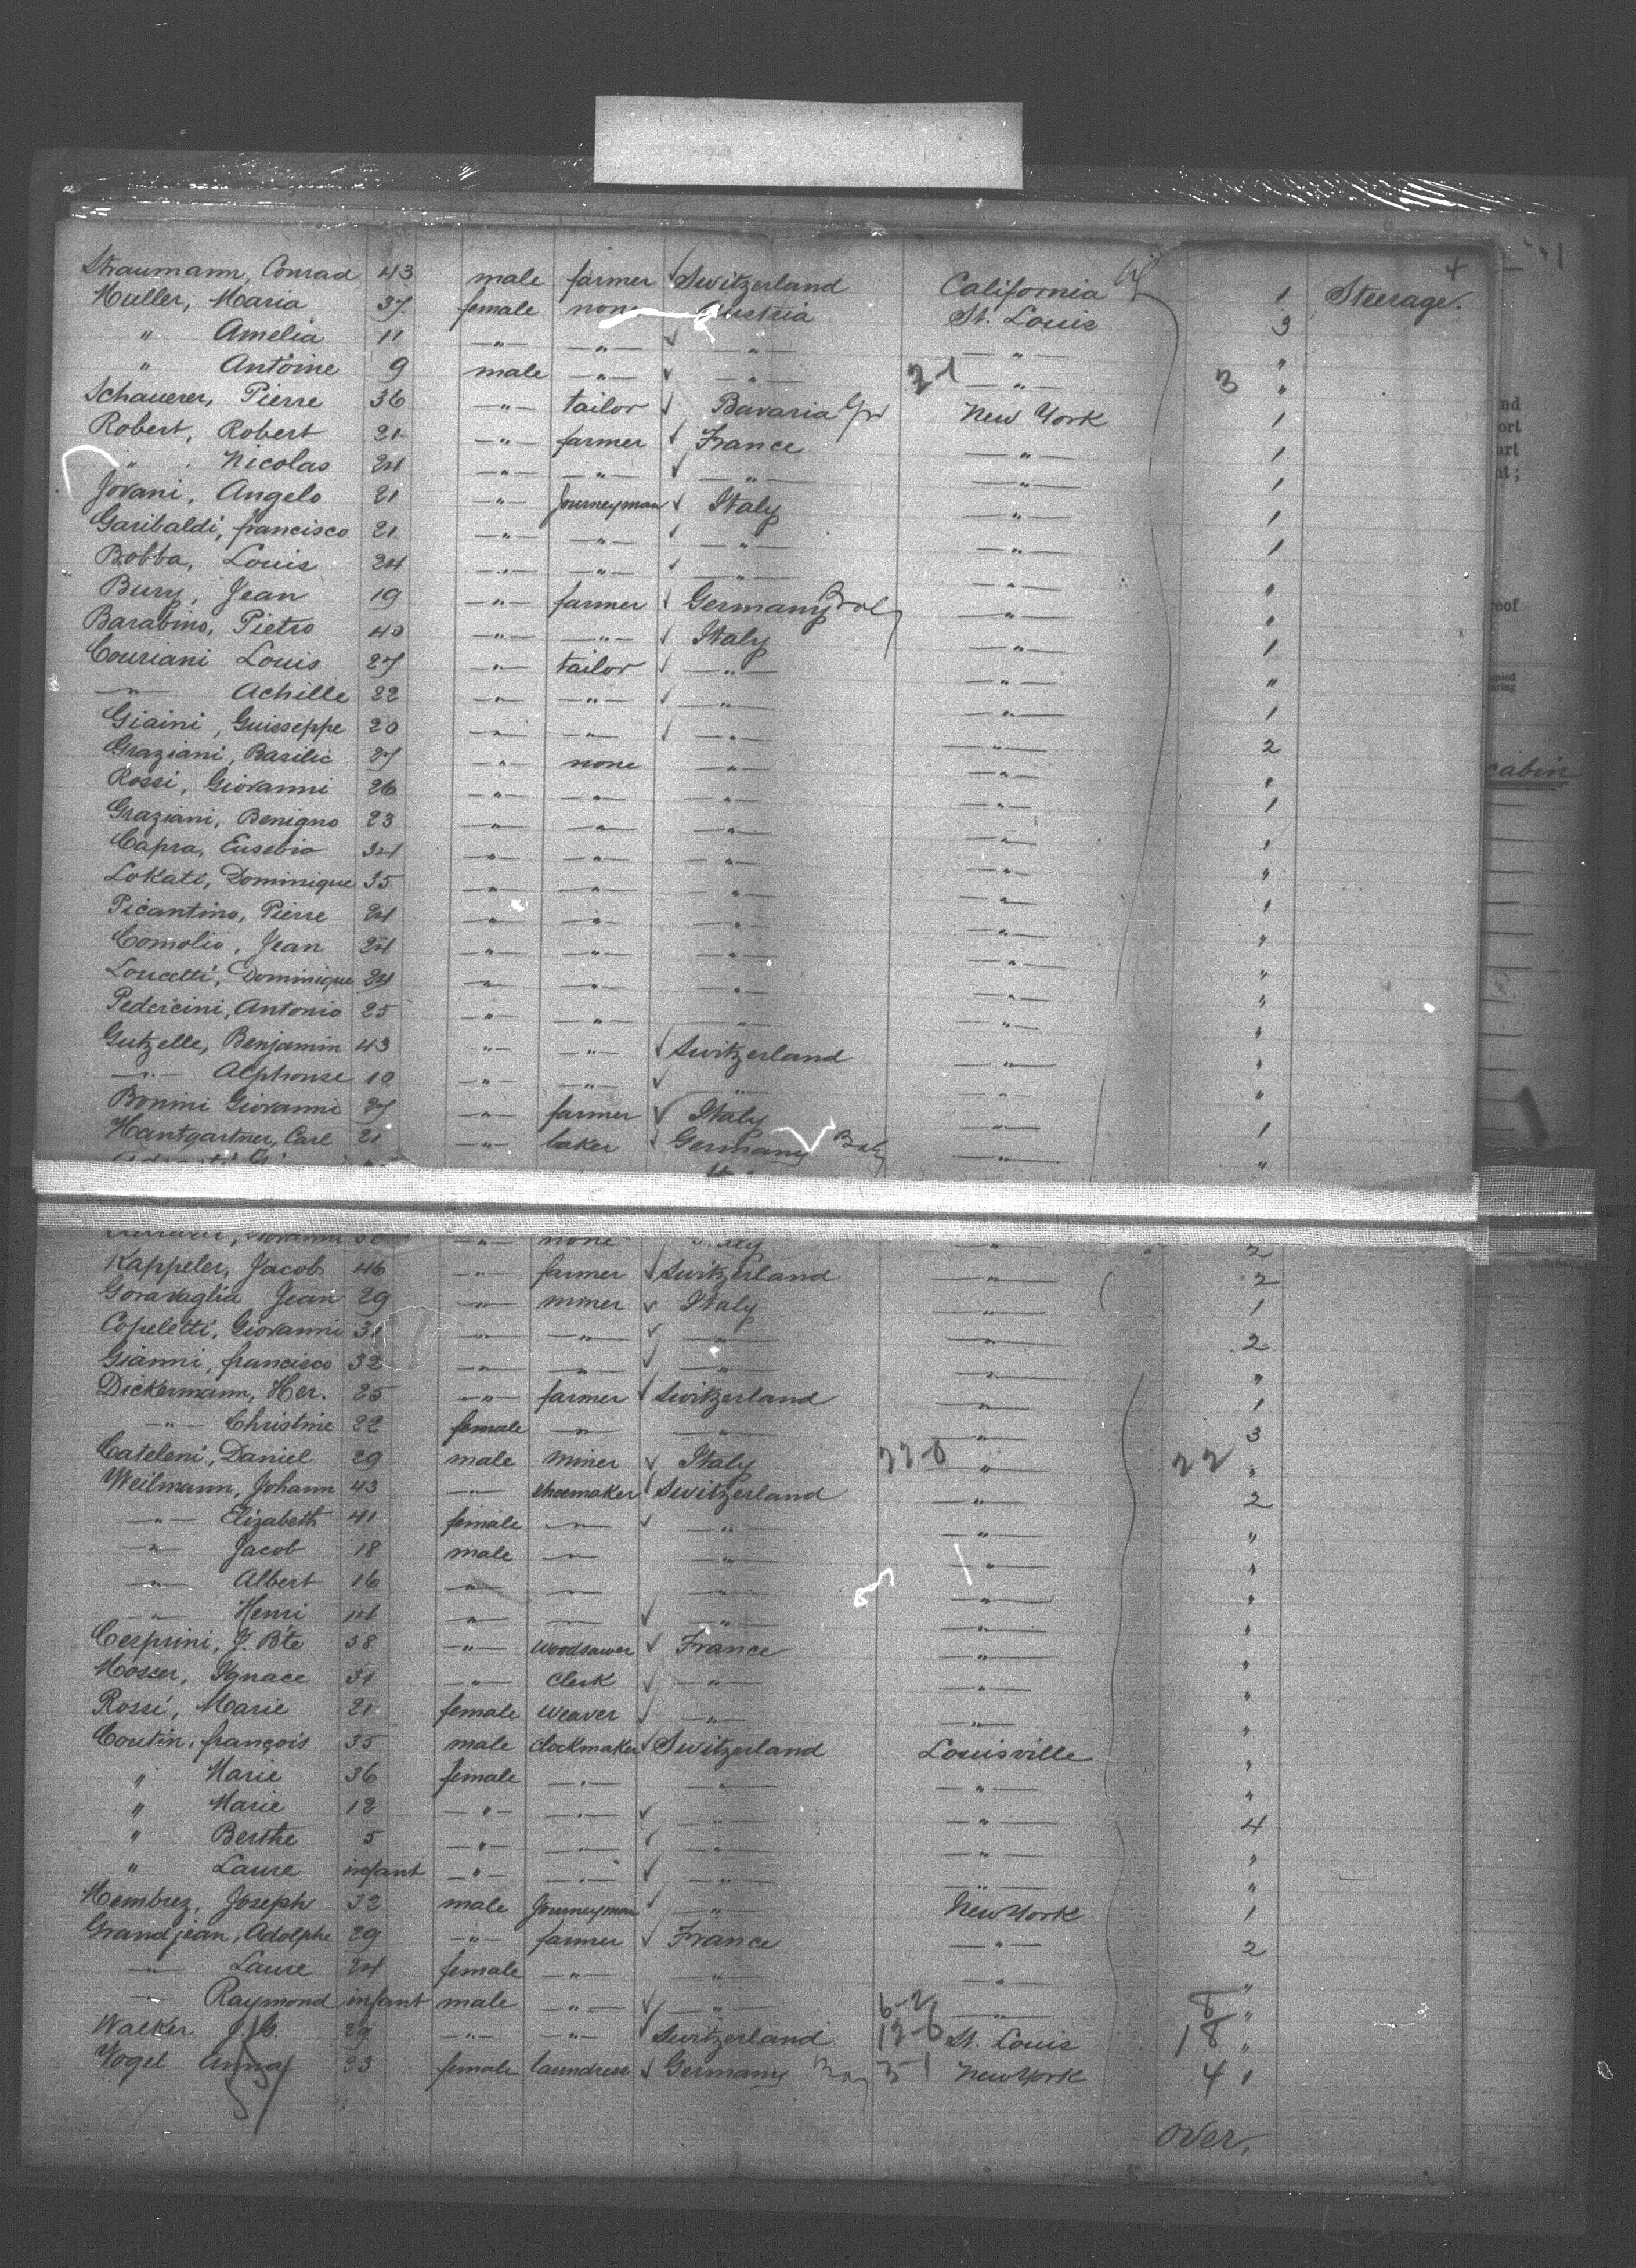 4
Straumann, Conrad 43 male farmer Switzerland California 1 Steerage.
Muller, Maria 37 female none Austria St. Louis 3
" Amelia 11 " " " " "
" Antoine 9 male " " 2-1 " 3 "
Schauerer, Pierre 36 " tailor Bavaria New York 1
Robert, Robert 21 " farmer France " 1
" Nicolas 24 " " " " 1
Jovani, Angelo 21 " Journeyman Italy " 1
Garibaldi, francisco 21 " " " " 1
Bobba, Louis 24 " " " " "
Bury, Jean 19 " farmer Germany " "
Barabino, Pietro 40 " " Italy " 1
Couriani Louis 27 " tailor " " "
" Achille 22 " " " " 1
Giaini, Guiseseppe 20 " " " " 2
Graziani, Basilic 27 " none " " "
Rossi, Giovanni 26 " " " " 1
Graziani, Benigno 23 " " " " "
Capra, Eusebio 34 " " " " "
Lokati, Dominique 35 " " " " "
Picantino, Pierre 24 " " " " "
Comolio, Jean 24 " " " " "
Loucetti, Dominique 24 " " " " "
Pedercini, Antonio 25 " " " " "
Gutzelle, Benjamin 43 " " Switzerland " "
" Alphonse 10 " " " " "
Bonini Giovanni 27 " farmer Italy " 1
Hantgartner, Carl 21 " baker Germany " "
Giovanni " none Italy " 2
Kappeler, Jacob 46 " farmer Switzerland " 2
Goravaglia Jean 29 " miner Italy " 1
Copeletti, Giovanni 31 " " " " 2
Gianni, francisco 32 " " " " "
Dickermann, Her. 25 " farmer Switzerland " 1
" Christine 22 female " " " 3
Cateleni, Daniel 29 male miner Italy 22-0 " 22 "
Weilmann, Johann 43 " shoemaker Switzerland " 2
" Elizabeth 41 female " " " "
" Jacob 18 male " " " "
" Albert 16 " " " " "
" Henri 14 " " " " "
Cesprini, J. Bte 38 " woodsawer France " "
Moser, Ignace 31 " Clerk " " "
Rossi, Marie 21 female weaver " " "
Coutin, françois 35 male clockmaker Switzerland Louisville "
" Marie 36 female " " " "
" Marie 12 " " " " 4
" Berthe 5 " " " " "
" Laure infant " " " " "
Membrez, Joseph 32 male Journeyman " New York 1
Grandjean, Adolphe 29 " farmer France " 2
" Laure 24 female " " " "
" Raymond infant male " " 6-2 " 8 "
Walker J. G. 29 " " Switzerland 12-6 St. Louis 18 "
Vogel Anna 23 female laundress Germany 3-1 New York 4 1
over.
nd
ort
art
nt;
eof
cabin